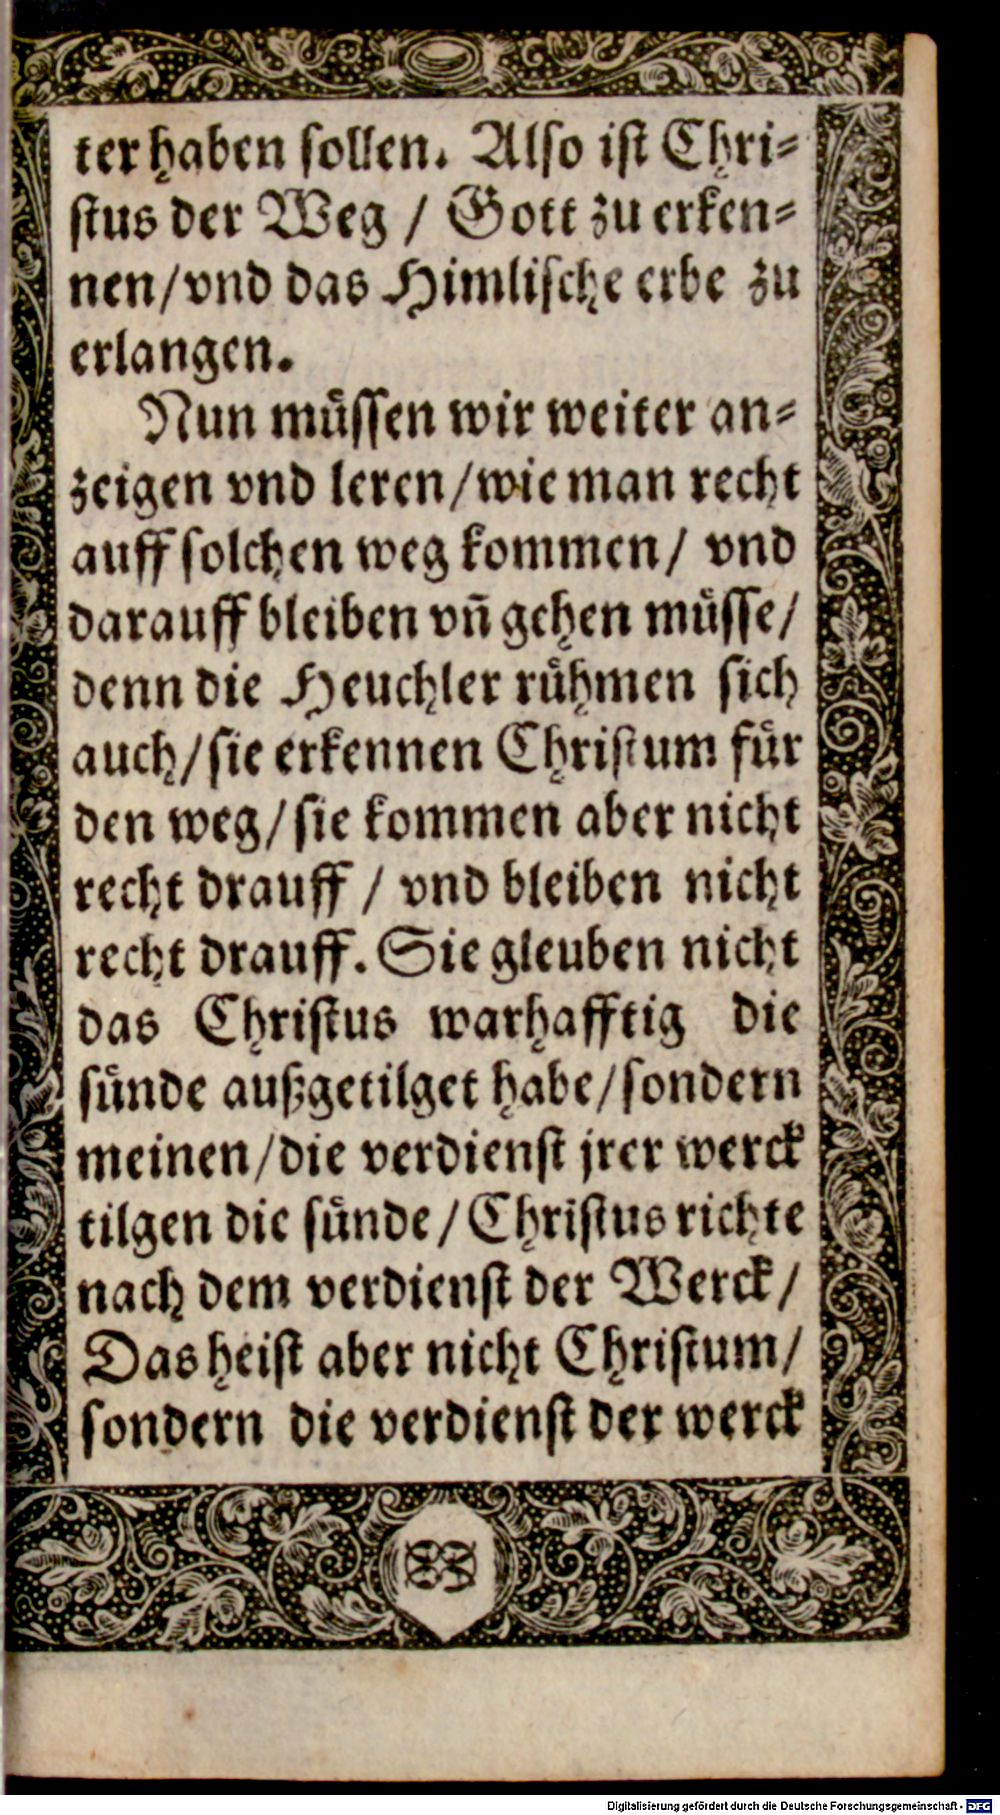 ter haben sollen. Also ist Chri⸗
stus der Weg / Gott zu erken⸗
nen/vnd das Himlische erbe zu
erlangen.
Nun muͤssen wir weiter an⸗
zeigen vnd leren/wie man recht
auff solchen weg kommen/ vnd
darauff bleiben vñ gehen muͤsse/
denn die Heuchler ruͤhmen sich
auch/sie erkennen Christum fuͤr
den weg/sie kommen aber nicht
recht drauff / vnd bleiben nicht
recht drauff. Sie gleuben nicht
das Christus warhafftig die
suͤnde außgetilget habe/sondern
meinen/die verdienst jrer werck
tilgen die suͤnde/Christus richte
nach dem verdienst der Werck/
Das heist aber nicht Christum/
sondern die verdienst der werck
Digitalisierung gefördert durch die Deutsche Forschungsgemeinschaft - DFG